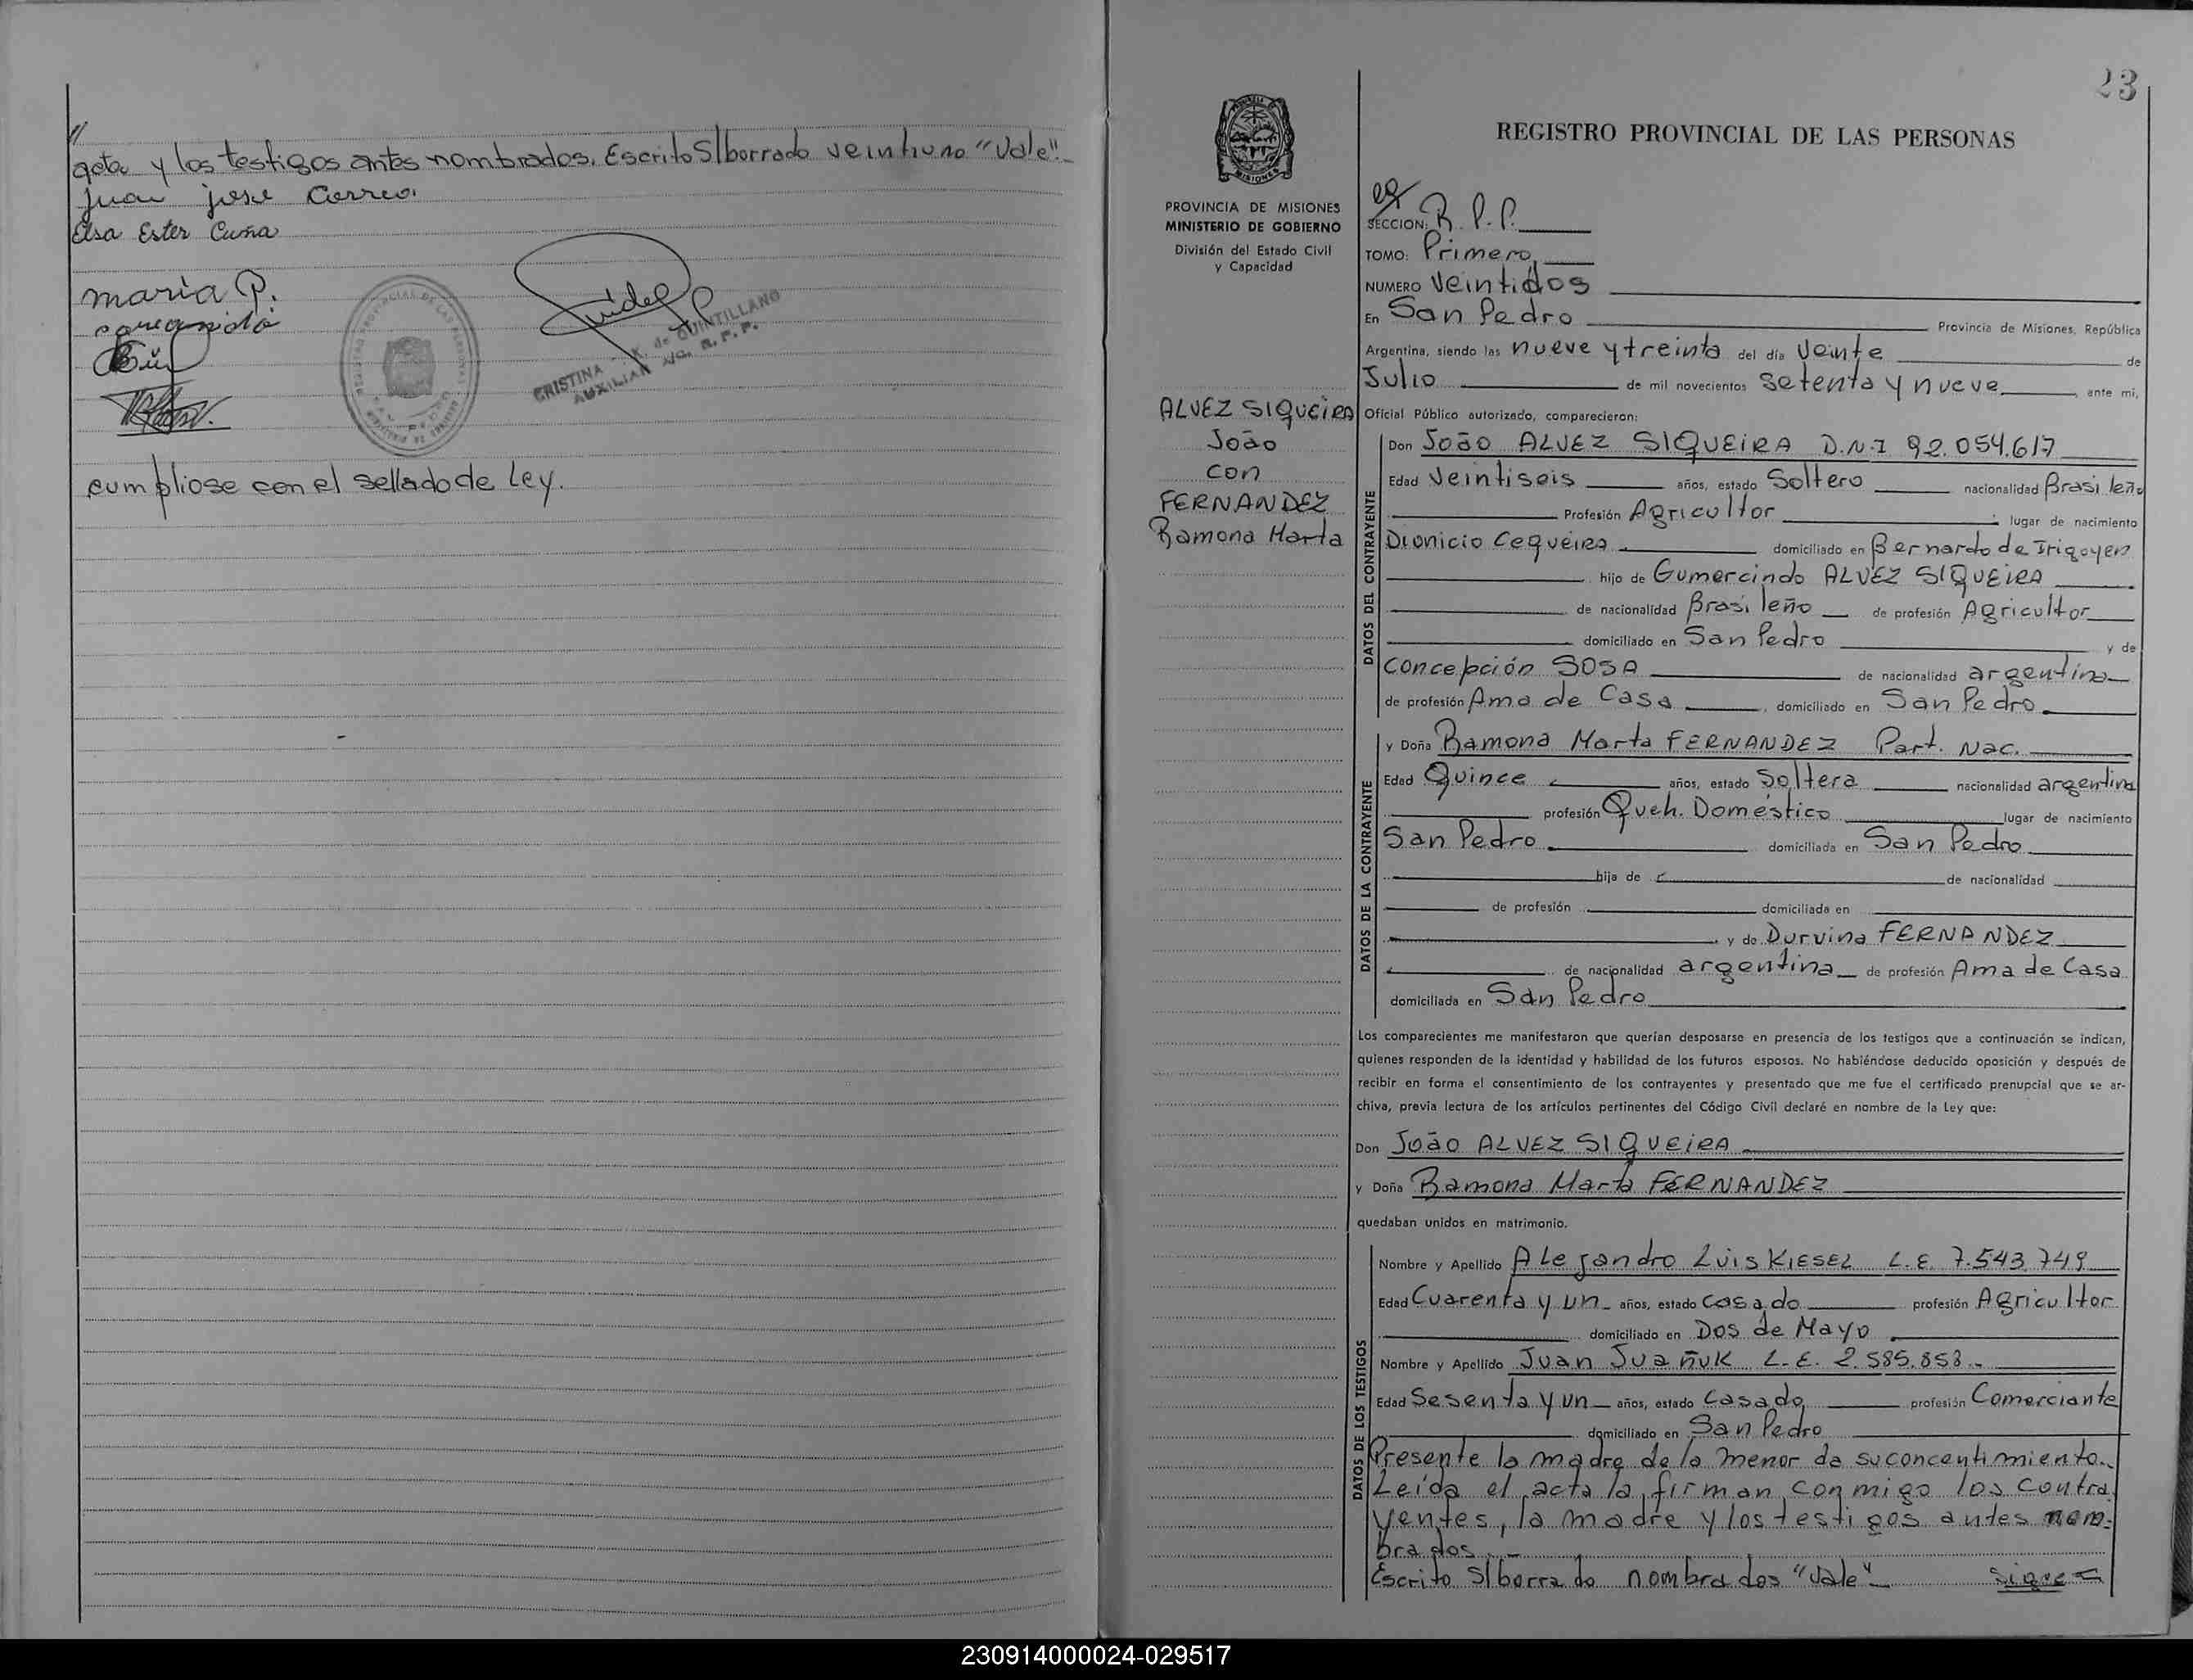 acta y los testigos antes nombrados. Escrito S/borrado veintiuno "Vale".-
Juan jose Correa
Elsa Ester Cuña
maria P.
CRISTINA K. de QUINTILLANO
AUXILIAR A/C. R. P. P.
cumpliose con el sellado de Ley.
23
PROVINCIA DE MISIONES
MINISTERIO DE GOBIERNO
División del Estado Civil
y Capacidad
ALVEZ SIQUEIRA
João
con
FERNANDEZ
Ramona Marta
REGISTRO PROVINCIAL DE LAS PERSONAS
SECCION: R.P.P.
TOMO: Primero
NUMERO Veintidos
En San Pedro Provincia de Misiones, República
Argentina, siendo las nueve y treinta del día Veinte de
Julio de mil novecientos setenta y nueve, ante mi,
Oficial Público autorizado, comparecieron:
DATOS DEL CONTRAYENTE
Don João ALVEZ SIQUEIRA D.N.I 92.054.617
Edad Veintiseis años, estado Soltero nacionalidad Brasileño
Profesión Agricultor lugar de nacimiento
Dionicio Cequeira domiciliado en Bernardo de Irigoyen
hijo de Gumercindo ALVEZ SIQUEIRA
de nacionalidad Brasileño de profesión Agricultor
domiciliado en San Pedro y de
Concepción SOSA de nacionalidad argentina
de profesión Ama de Casa, domiciliado en San Pedro
DATOS DE LA CONTRAYENTE
y Doña Ramona Marta FERNANDEZ Part. Nac.
Edad Quince años, estado Soltera nacionalidad argentina
profesión Queh. Doméstico lugar de nacimiento
San Pedro domiciliada en San Pedro
hija de de nacionalidad
de profesión domiciliada en
y de Durvina FERNANDEZ
de nacionalidad argentina de profesión Ama de Casa
domiciliada en San Pedro
Los comparecientes me manifestaron que querían desposarse en presencia de los testigos que a continuación se indican,
quienes responden de la identidad y habilidad de los futuros esposos. No habiéndose deducido oposición y después de
recibir en forma el consentimiento de los contrayentes y presentado que me fue el certificado prenupcial que se ar-
chiva, previa lectura de los artículos pertinentes del Código Civil declaré en nombre de la Ley que:
Don João ALVEZ SIQUEIRA
y Doña Ramona Marta FERNANDEZ
quedaban unidos en matrimonio.
DATOS DE LOS TESTIGOS
Nombre y Apellido Alejandro Luis KIESEL L.E. 7.543.749
Edad Cuarenta y un años, estado casado profesión Agricultor
domiciliado en Dos de Mayo
Nombre y Apellido Juan Juañuk L.E. 2.585.858.-
Edad Sesenta y un años, estado casado profesión Comerciante
domiciliado en San Pedro
Presente la madre de la menor da su concentimiento.
Leída el acta la firman conmigo los contra
yentes, la madre y los testigos antes nom-
brados.-
Escrito S/borrado nombrados "Vale" sigue
230914000024-029517